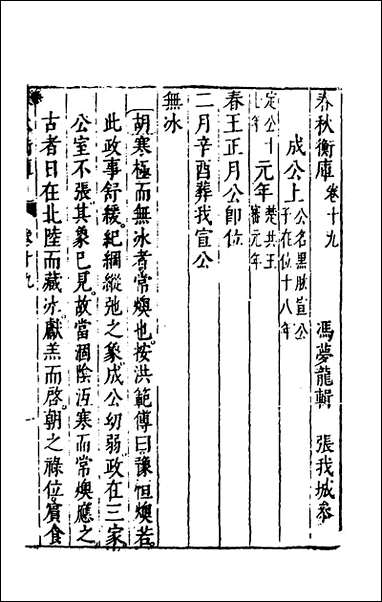 春秋衡庫 卷十九 馮夢龍輯 張我城參
成公上 公名黑肱宣公子在位十八年
定公十七年 元年 楚共王審元年
春王正月公即位
二月辛酉葬我宣公
無冰
胡寒極而無冰者常燠也按洪範傳曰豫恒燠若
此政事舒緩紀綱縱弛之象成公幼弱政在三家
公室不張其象已見故當涸陰沍寒而常燠應之
古者日在北陸而藏冰獻羔而啓朝之祿位賓食